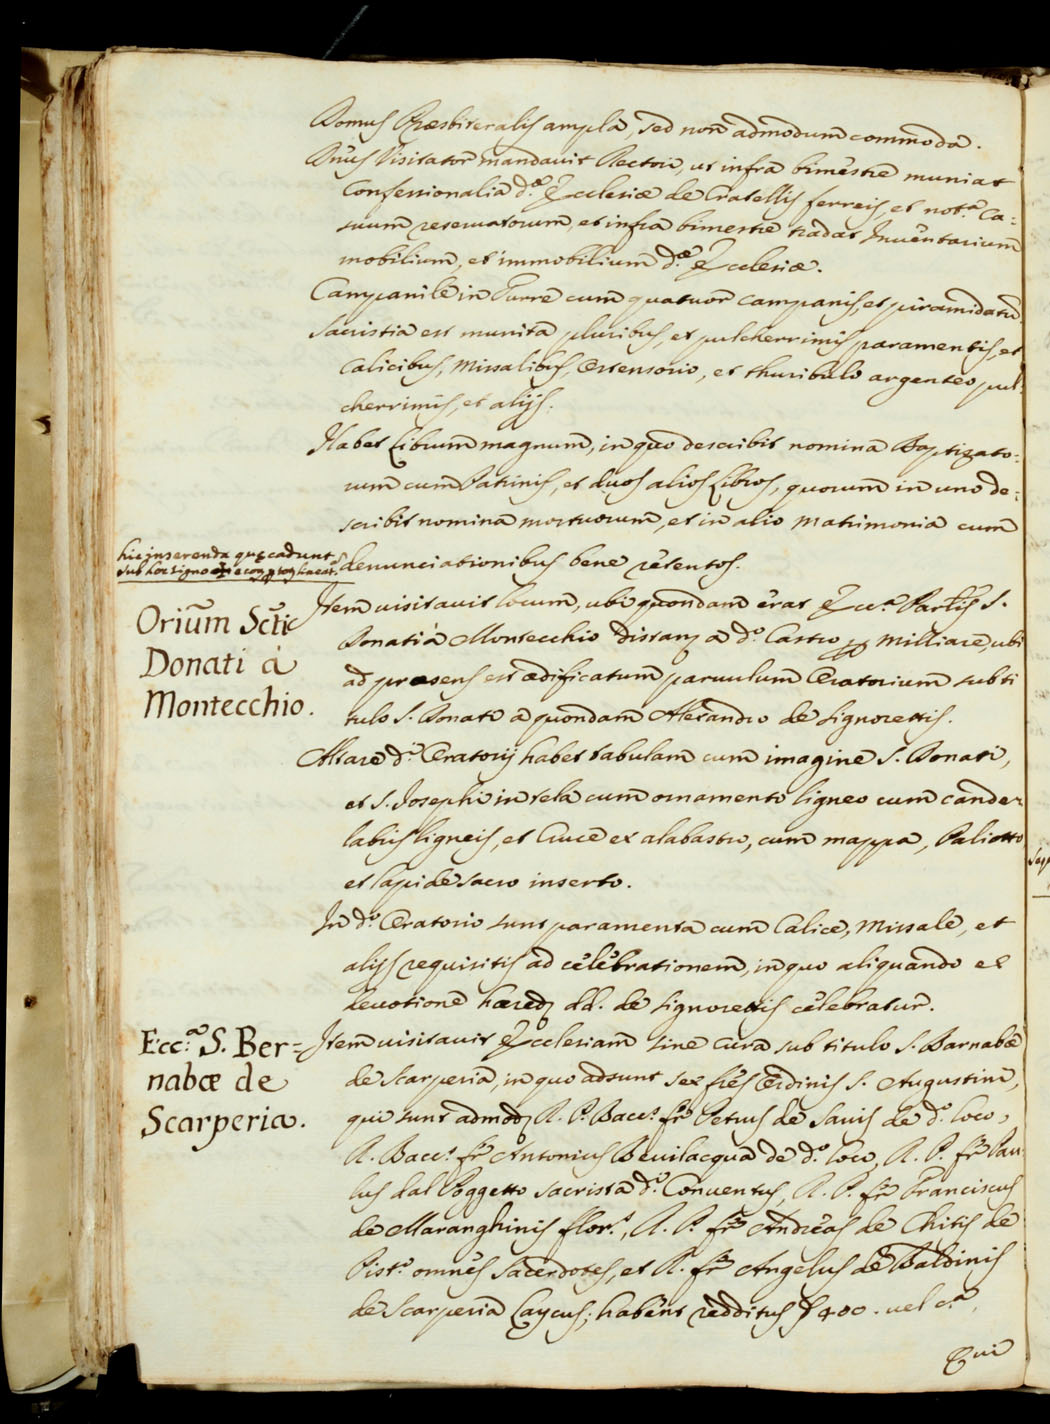 Domus Præsbiteralis ampla, sed non admodum commoda.
Dnus Visitator mandavit Rectori, ut infra bimestre muniat
Confessionalia d.æ Ecclesiæ de Cratellis ferreis, et not.a Ca=
suum reservatorum, et infra bimestre tradat Inventarium
mobilium, et immobilium d.æ Ecclesiæ.
Campanile in Turre cum quatuor campanis, et piramidatu
Sacristia est munita pluribus, et pulcherrimis paramentis, et
Calicibus, Missalibus, Ostensorio, et thuribulo argenteo, pul=
cherrimis, et alijs.
Habet Librum magnum, in quo describit nomina Baptizato=
rum cum Patrinis, et duos alios Libros, quorum in uno de=
scribit nomina mortuorum, et in alio Matrimonia cum
denunciationibus bene retentos.
hic inserenda quę cadunt
sub hoc signo ✠
Orium Scti
Donati à
Montecchio.
Item visitavit locum, ubi quondam erat Ecc.a Parlis S.
Donati à Montecchio distans a d.o Castro milliare, ubi
ad præsens est ædificatum parvulum Oratorium sub ti
tulo S. Donati a quondam Alexandro de Signorettis.
Altare d.i Oratorij habet tabulam cum imagine S. Donati,
et S. Josephi in tela cum ornamento ligneo cum cande=
labris ligneis, et Cruce ex alabastro, cum mappa, Paliotto
et lapide sacro inserto.
In d.o Oratorio sunt paramenta cum Calice, Missale, et
alijs requisitis ad celebrationem, in quo aliquando ex
devotione hæred. dd. de Signorettis celebratur.
Ecc.a S. Ber=
nabæ de
Scarperia.
Item visitavit Ecclesiam sine cura sub titulo S. Barnabæ
de Scarperia, in quo adsunt sex fres Ordinis S. Augustini,
qui sunt admod. R. P. Bacc.s fr Petrus de Savis de d.o loco,
R. Bacc.s fr Antonius Bevilacqua de d.o loco, R. P. fr Pau
lus dal Poggetto sacrista d.i Conventus, R. P. fr Franciscus
de Maranghinis flor.s, R. P. fr Andreas de Chitis de
Pist.o omnes Sacerdotes, et R. fr Angelus de Baldinis
de Scarperia Laycus; habent redditus 400. vel c.a,
Qui